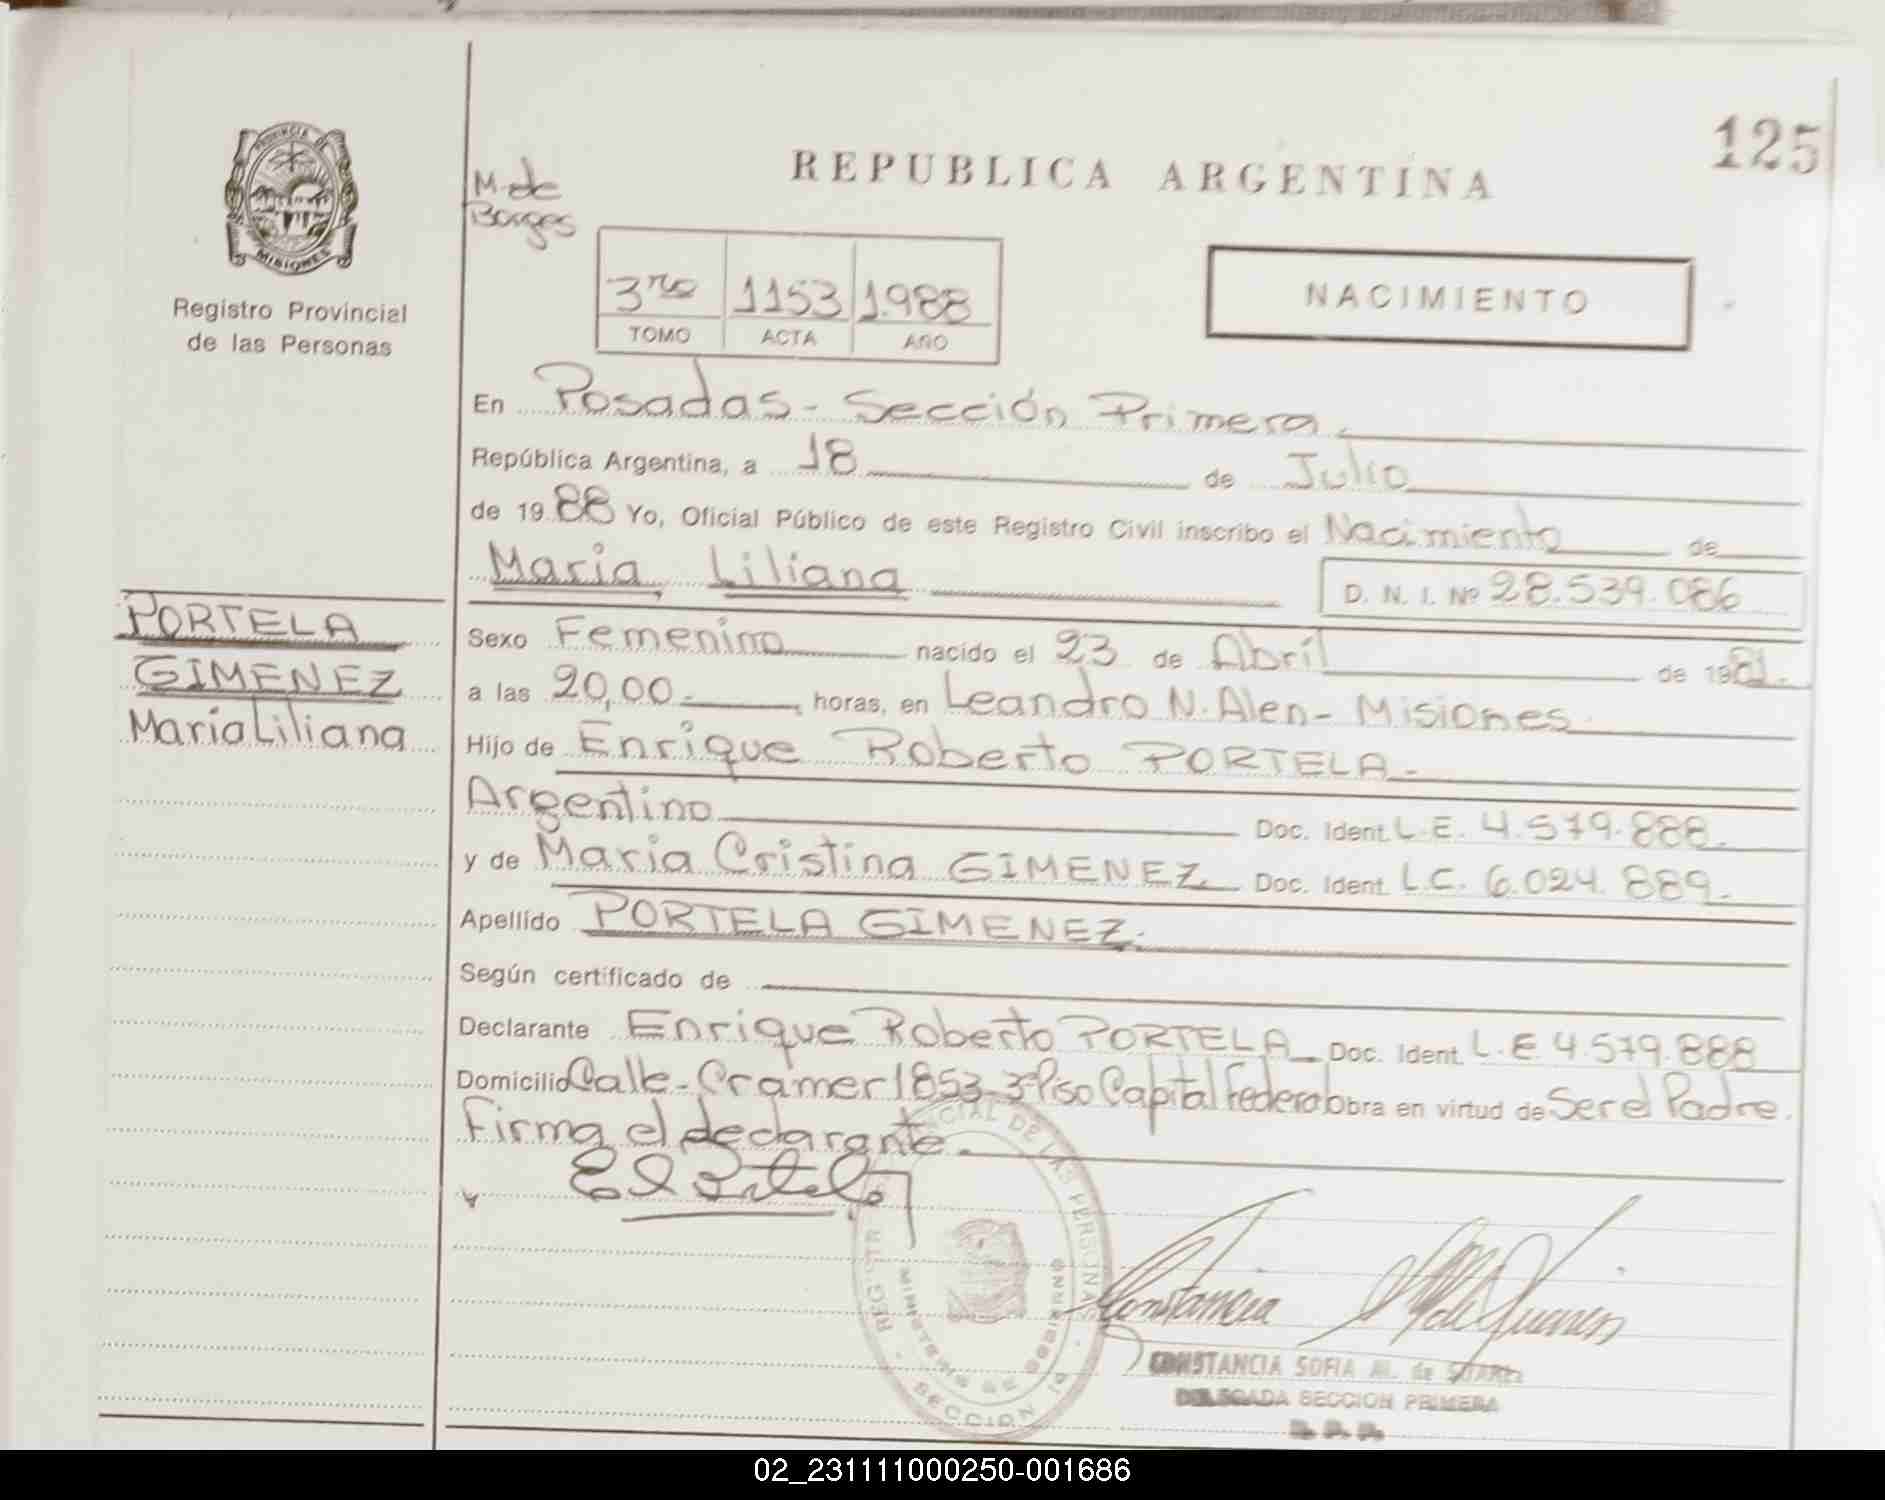 125
REPUBLICA ARGENTINA
PROVINCIA DE
MISIONES
Registro Provincial
de las Personas
M. de
Borges
3ro 1153 1.988
TOMO ACTA AÑO
NACIMIENTO
En Posadas - Sección Primera.
República Argentina, a 18 de Julio
de 19 88 Yo, Oficial Público de este Registro Civil inscribo el Nacimiento de
Maria, Liliana D. N. I. Nº 28.539.086
PORTELA
GIMENEZ
Maria Liliana
Sexo Femenino nacido el 23 de Abril de 1981.
a las 20,00 - horas, en Leandro N. Alen - Misiones
Hijo de Enrique Roberto PORTELA -
Argentino Doc. Ident. L.E. 4.579.888.
y de Maria Cristina GIMENEZ Doc. Ident. L.C. 6.024.889.
Apellido PORTELA GIMENEZ.
Según certificado de
Declarante Enrique Roberto PORTELA Doc. Ident. L.E 4.579.888
Domicilio Calle - Cramer 1853 - 3º Piso Capital Federal obra en virtud de Ser el Padre.
Firma el declarante.
DE LAS PERSONAS
SECCION
Constancia
CONSTANCIA SOFIA M. de
DELEGADA SECCION PRIMERA
02_231111000250-001686